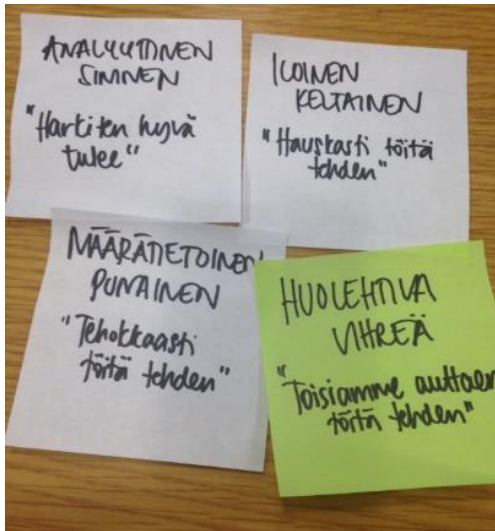 ANALYYTTINEN
SININEN
"Harkiten hyvä
tulee"
ILOINEN
KELTAINEN
"Hauskasti töitä
tehden"
MÄÄRÄTIETOINEN
PUNAINEN
"Tehokkaasti
töitä tehden"
HUOLEHTIVA
VIHREÄ
"Toisiamme auttaen
töitä tehden"